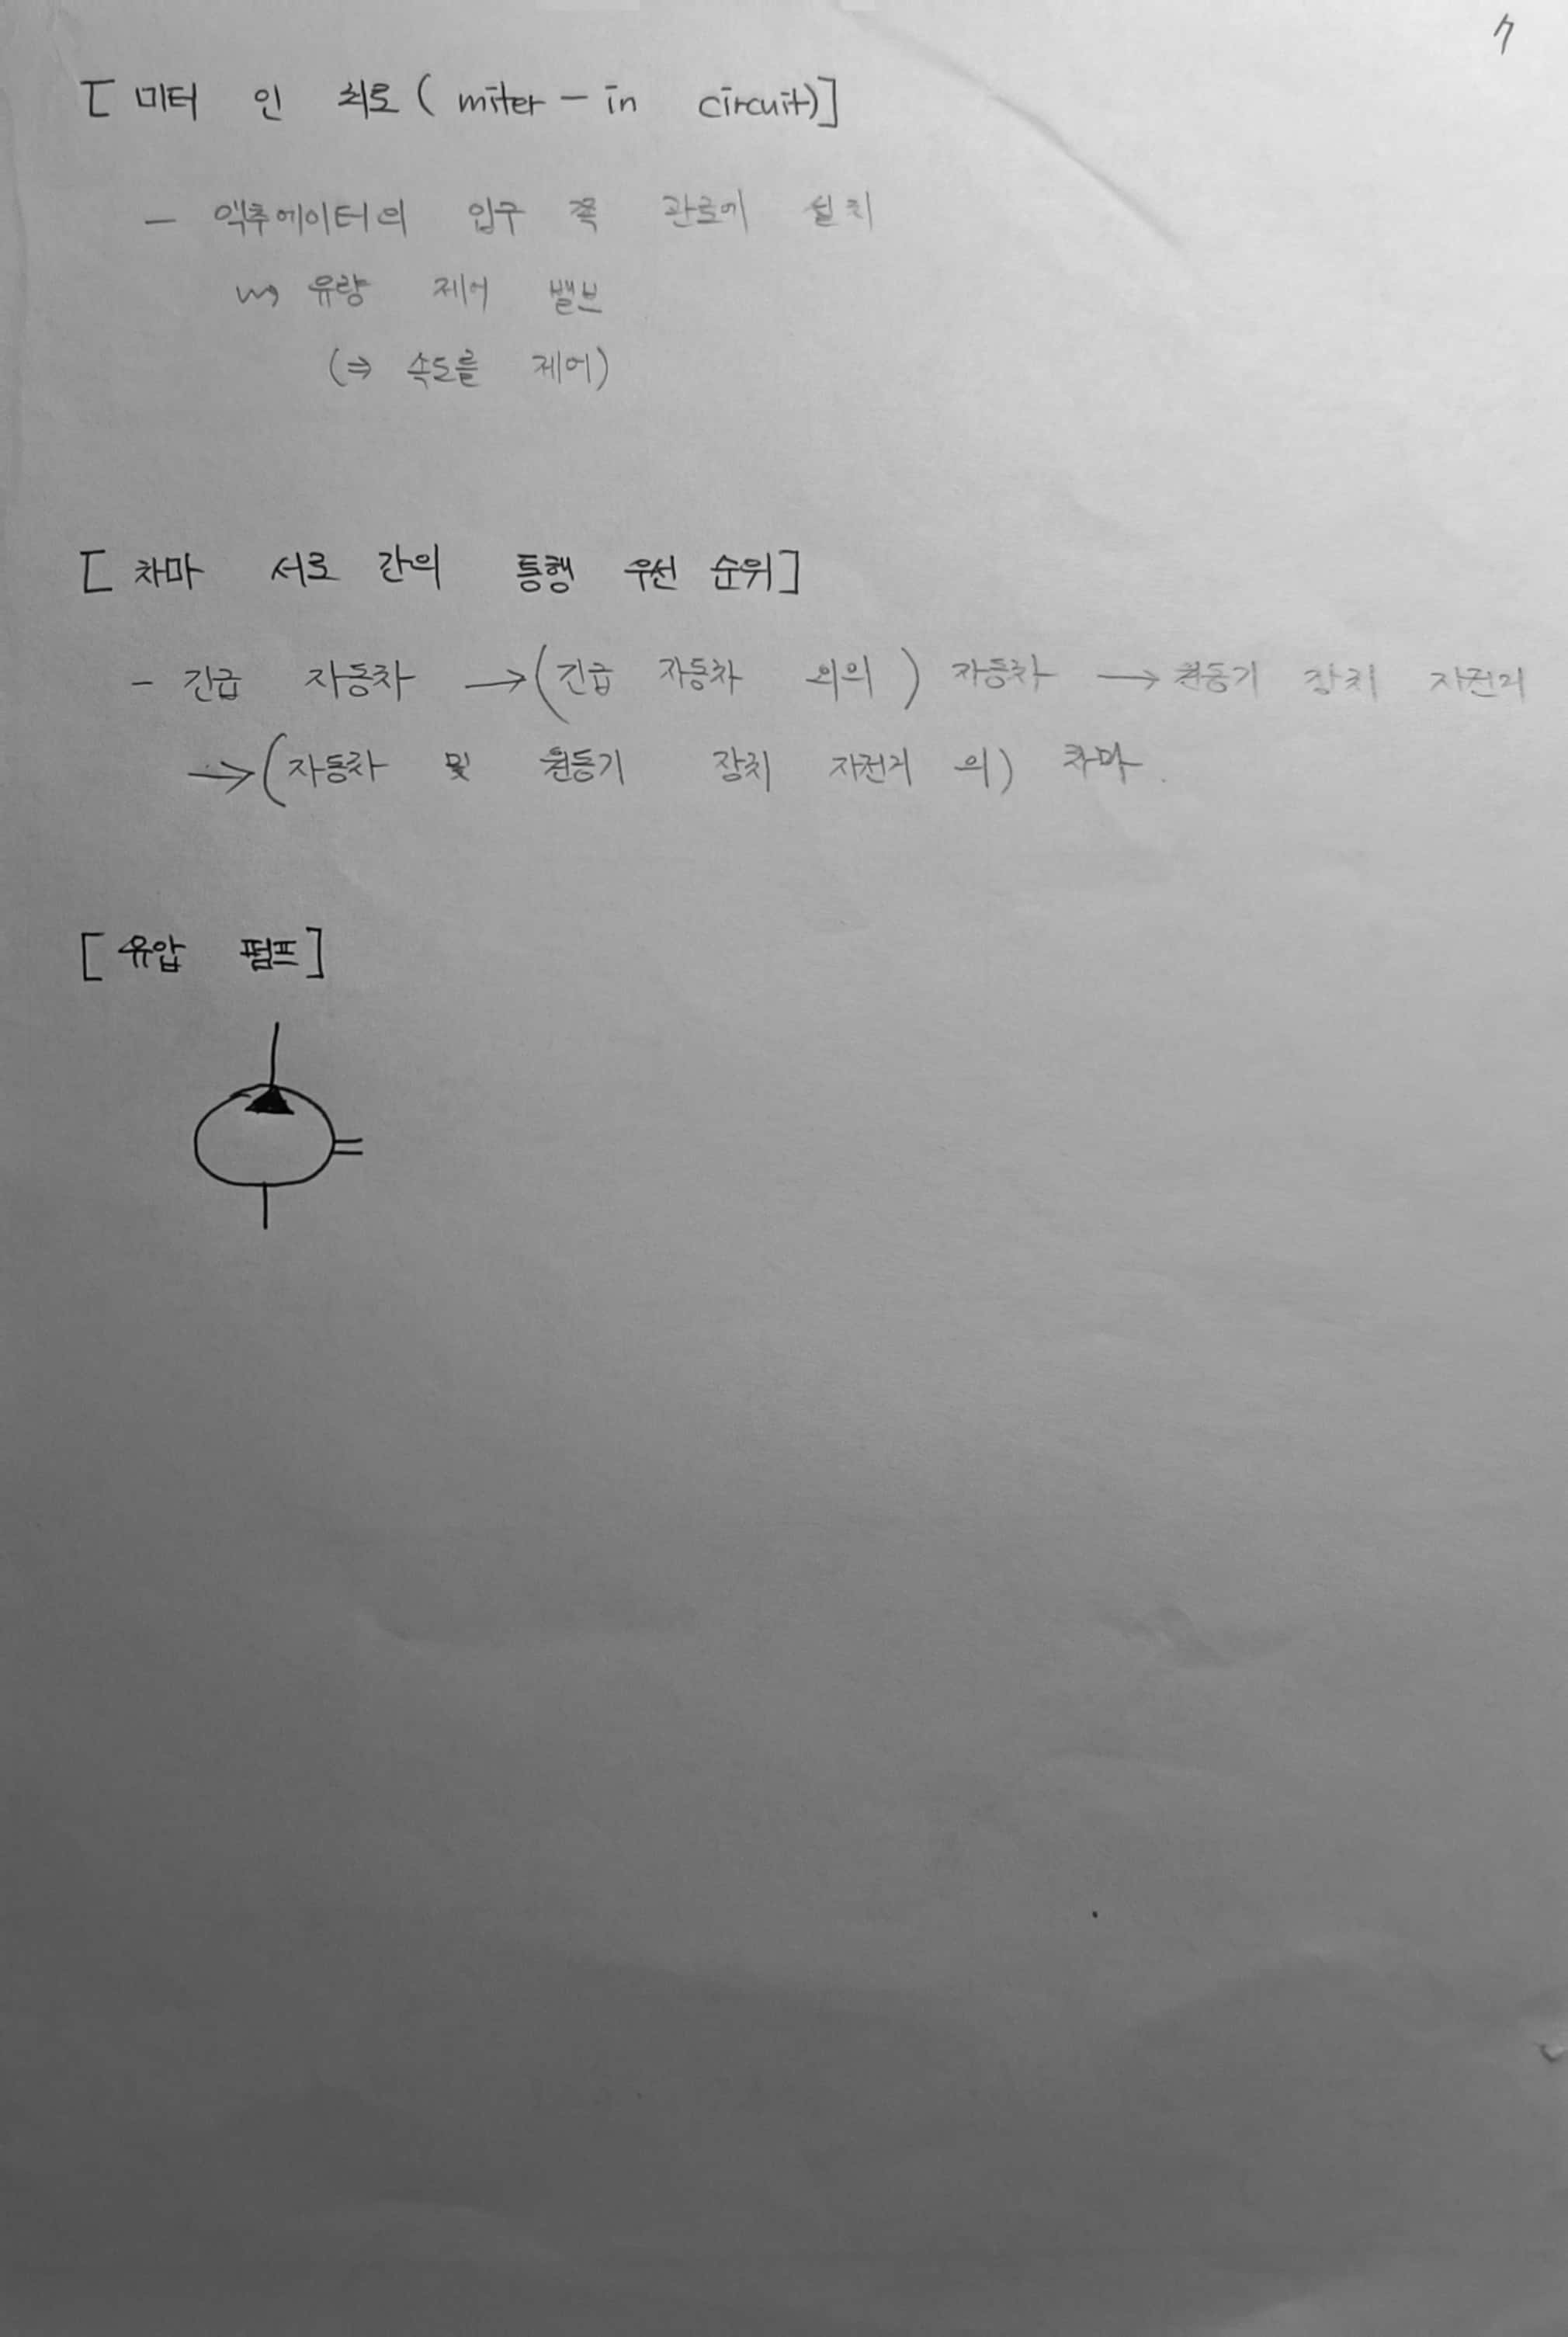 7
[미터 인 회로( miter - in circuit)]
- 액추에이터의 입구 쪽 관로에 설치
↝ 유량 제어 밸브
(⇒ 속도를 제어)
[차마 서로 간의 통행 우선 순위]
- 긴급 자동차 → (긴급 자동차 외의) 자동차 → 원동기 장치 자전거
→ (자동차 및 원동기 장치 자전거 외) 차마
[유압 펌프]